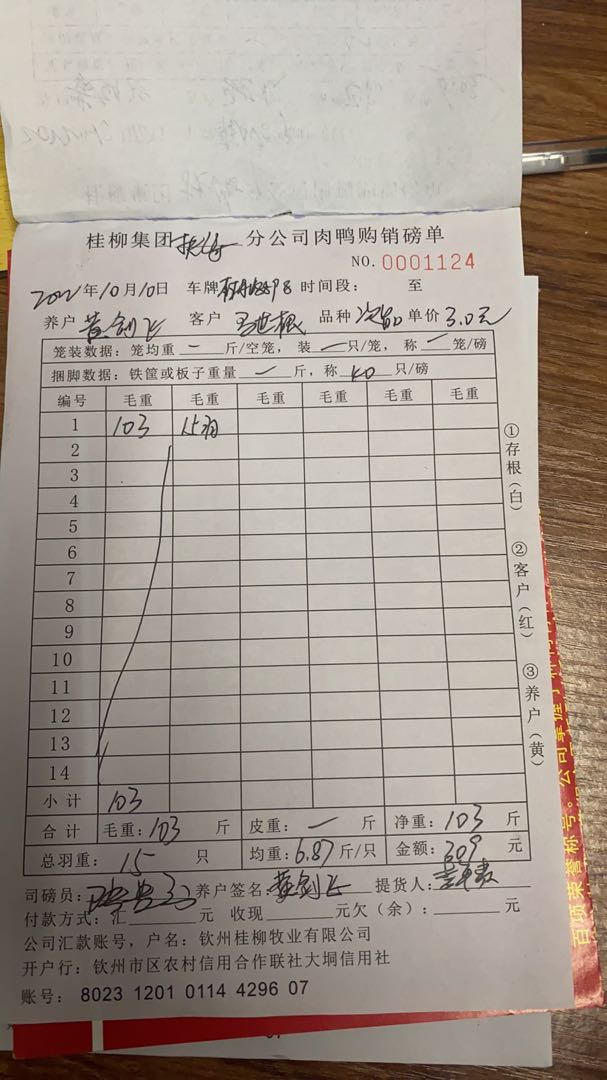 桂柳集团 分公司肉鸭购销磅单
NO. 0001124
2022年10月10日 车牌 时间段: 至
养户 黄剑飞 客户 马世根 品种 次品 单价 3.0元
笼装数据: 笼均重 一 斤/空笼, 装 一 只/笼, 称 一 笼/磅
捆脚数据: 铁筐或板子重量 一 斤, 称 40 只/磅
编号 毛重 毛重 毛重 毛重 毛重 毛重
1 103 15羽
2
3
4
5
6
7
8
9
10
11
12
13
14
小计 103
合计 毛重: 103 斤 皮重: 一 斤 净重: 103 斤
总羽重: 15 只 均重: 6.87 斤/只 金额: 309 元
司磅员: 养户签名: 黄剑飞 提货人:
付款方式: 汇 元 收现 元欠(余): 元
公司汇款账号, 户名: 钦州桂柳牧业有限公司
开户行: 钦州市区农村信用合作联社大垌信用社
账号: 8023 1201 0114 4296 07
①存根(白)
②客户(红)
③养户(黄)